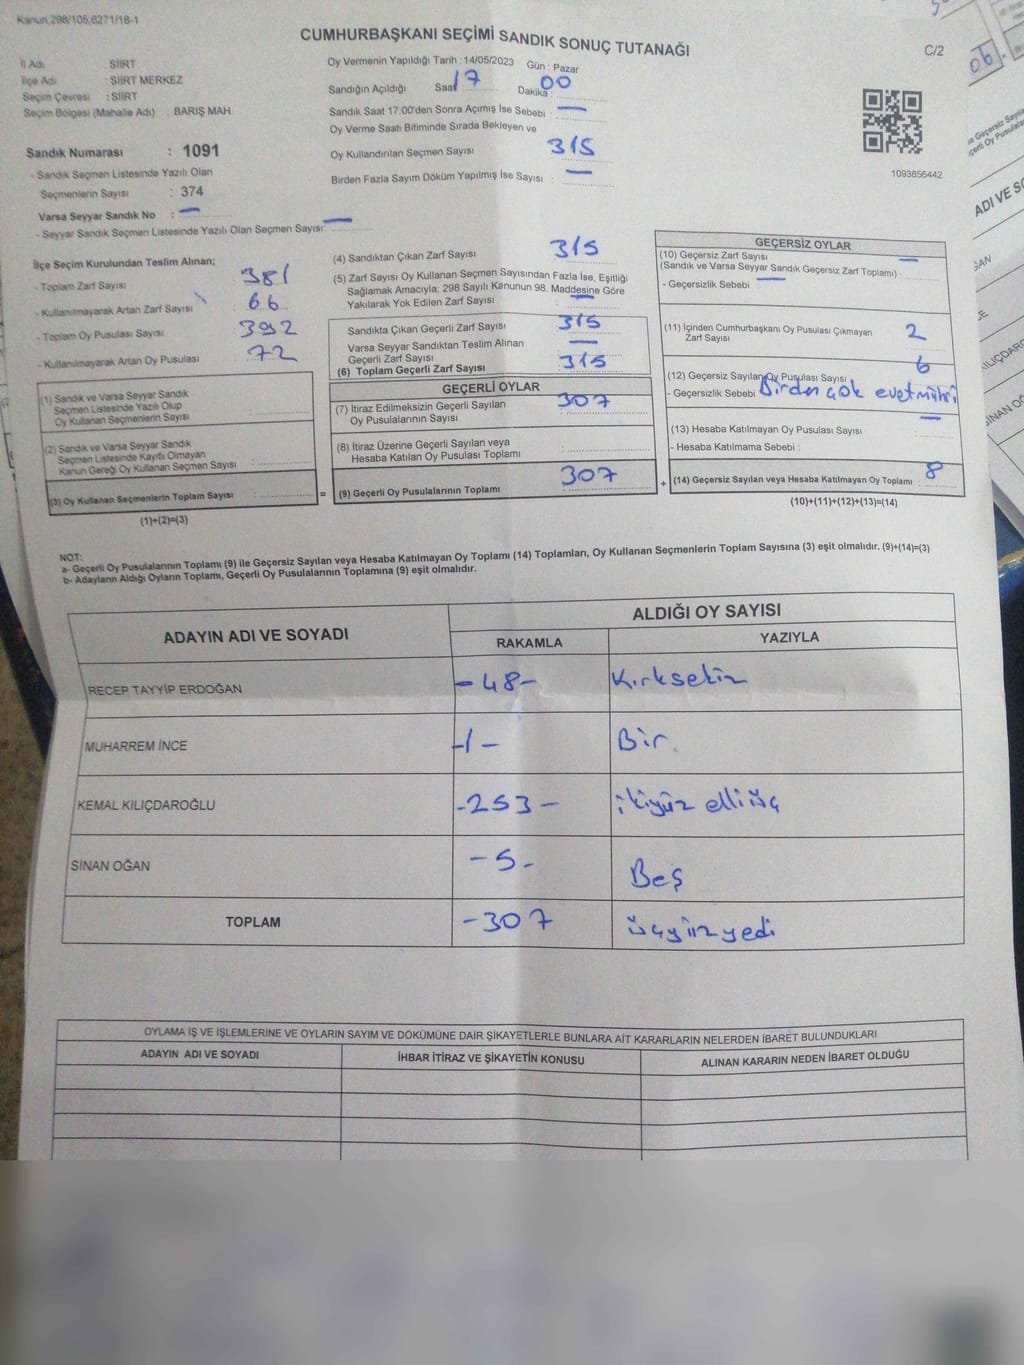 Kanun.298/105,6271/18-1
CUMHURBAŞKANI SEÇİMİ SANDIK SONUÇ TUTANAĞI
C/2
İl Adı : SİİRT
İlçe Adı : SİİRT MERKEZ
Seçim Çevresi : SİİRT
Seçim Bölgesi (Mahalle Adı) : BARIŞ MAH
Sandık Numarası : 1091
- Sandık Seçmen Listesinde Yazılı Olan
Seçmenlerin Sayısı : 374
Varsa Seyyar Sandık No : —
- Seyyar Sandık Seçmen Listesinde Yazılı Olan Seçmen Sayısı: —
Oy Vermenin Yapıldığı Tarih : 14/05/2023 Gün : Pazar
Sandığın Açıldığı Saat 17 Dakika : 00
Sandık Saat 17:00'den Sonra Açımış İse Sebebi : —
Oy Verme Saati Bitiminde Sırada Bekleyen ve
Oy Kullandırılan Seçmen Sayısı 315
Birden Fazla Sayım Döküm Yapılmış İse Sayısı : —
1093856442
İlçe Seçim Kurulundan Teslim Alınan;
- Toplam Zarf Sayısı 381
- Kullanılmayarak Artan Zarf Sayısı : 66
- Toplam Oy Pusulası Sayısı 392
- Kullanılmayarak Artan Oy Pusulası : 72
(1) Sandık ve Varsa Seyyar Sandık
Seçmen Listesinde Yazılı Olup
Oy Kullanan Seçmenlerin Sayısı :
(2) Sandık ve Varsa Seyyar Sandık
Seçmen Listesinde Kayıtlı Olmayan
Kanun Gereği Oy Kullanan Seçmen Sayısı :
(3) Oy Kullanan Seçmenlerin Toplam Sayısı : =
(1)+(2)=(3)
(4) Sandıktan Çıkan Zarf Sayısı 315
(5) Zarf Sayısı Oy Kullanan Seçmen Sayısından Fazla İse, Eşitliği
Sağlamak Amacıyla; 298 Sayılı Kanunun 98. Maddesine Göre
Yakılarak Yok Edilen Zarf Sayısı : —
Sandıkta Çıkan Geçerli Zarf Sayısı 315
Varsa Seyyar Sandıktan Teslim Alınan
Geçerli Zarf Sayısı —
(6) Toplam Geçerli Zarf Sayısı : 315
GEÇERLİ OYLAR
(7) İtiraz Edilmeksizin Geçerli Sayılan
Oy Pusulalarının Sayısı 307
(8) İtiraz Üzerine Geçerli Sayılan veya
Hesaba Katılan Oy Pusulası Toplamı :
(9) Geçerli Oy Pusulalarının Toplamı : 307 +
GEÇERSİZ OYLAR
(10) Geçersiz Zarf Sayısı —
(Sandık ve Varsa Seyyar Sandık Geçersiz Zarf Toplamı)
- Geçersizlik Sebebi : —
(11) İçinden Cumhurbaşkanı Oy Pusulası Çıkmayan
Zarf Sayısı 2
(12) Geçersiz Sayılan Oy Pusulası Sayısı 6
- Geçersizlik Sebebi Birden çok evet mührü
(13) Hesaba Katılmayan Oy Pusulası Sayısı : —
- Hesaba Katılmama Sebebi :
(14) Geçersiz Sayılan veya Hesaba Katılmayan Oy Toplamı : 8
(10)+(11)+(12)+(13)=(14)
NOT:
a- Geçerli Oy Pusulalarının Toplamı (9) ile Geçersiz Sayılan veya Hesaba Katılmayan Oy Toplamı (14) Toplamları, Oy Kullanan Seçmenlerin Toplam Sayısına (3) eşit olmalıdır. (9)+(14)=(3)
b- Adayların Aldığı Oyların Toplamı, Geçerli Oy Pusulalarının Toplamına (9) eşit olmalıdır.
ADAYIN ADI VE SOYADI ALDIĞI OY SAYISI
RAKAMLA YAZIYLA
RECEP TAYYİP ERDOĞAN -48- Kırksekiz
MUHARREM İNCE -1- Bir.
KEMAL KILIÇDAROĞLU -253- ikiyüz elli üç
SİNAN OĞAN -5- Beş
TOPLAM -307 üçyüz yedi
OYLAMA İŞ VE İŞLEMLERİNE VE OYLARIN SAYIM VE DÖKÜMÜNE DAİR ŞİKAYETLERLE BUNLARA AİT KARARLARIN NELERDEN İBARET BULUNDUKLARI
ADAYIN ADI VE SOYADI İHBAR İTİRAZ VE ŞİKAYETİN KONUSU ALINAN KARARIN NEDEN İBARET OLDUĞU